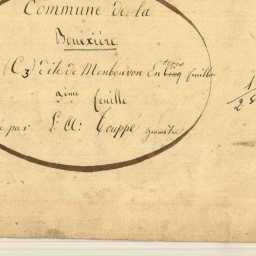 Commune de la
Bouëxière
(C 3) dite de Monbouvon En cinq feuilles
2ème feuille
par St. Al: Couppé géomètre
1
25